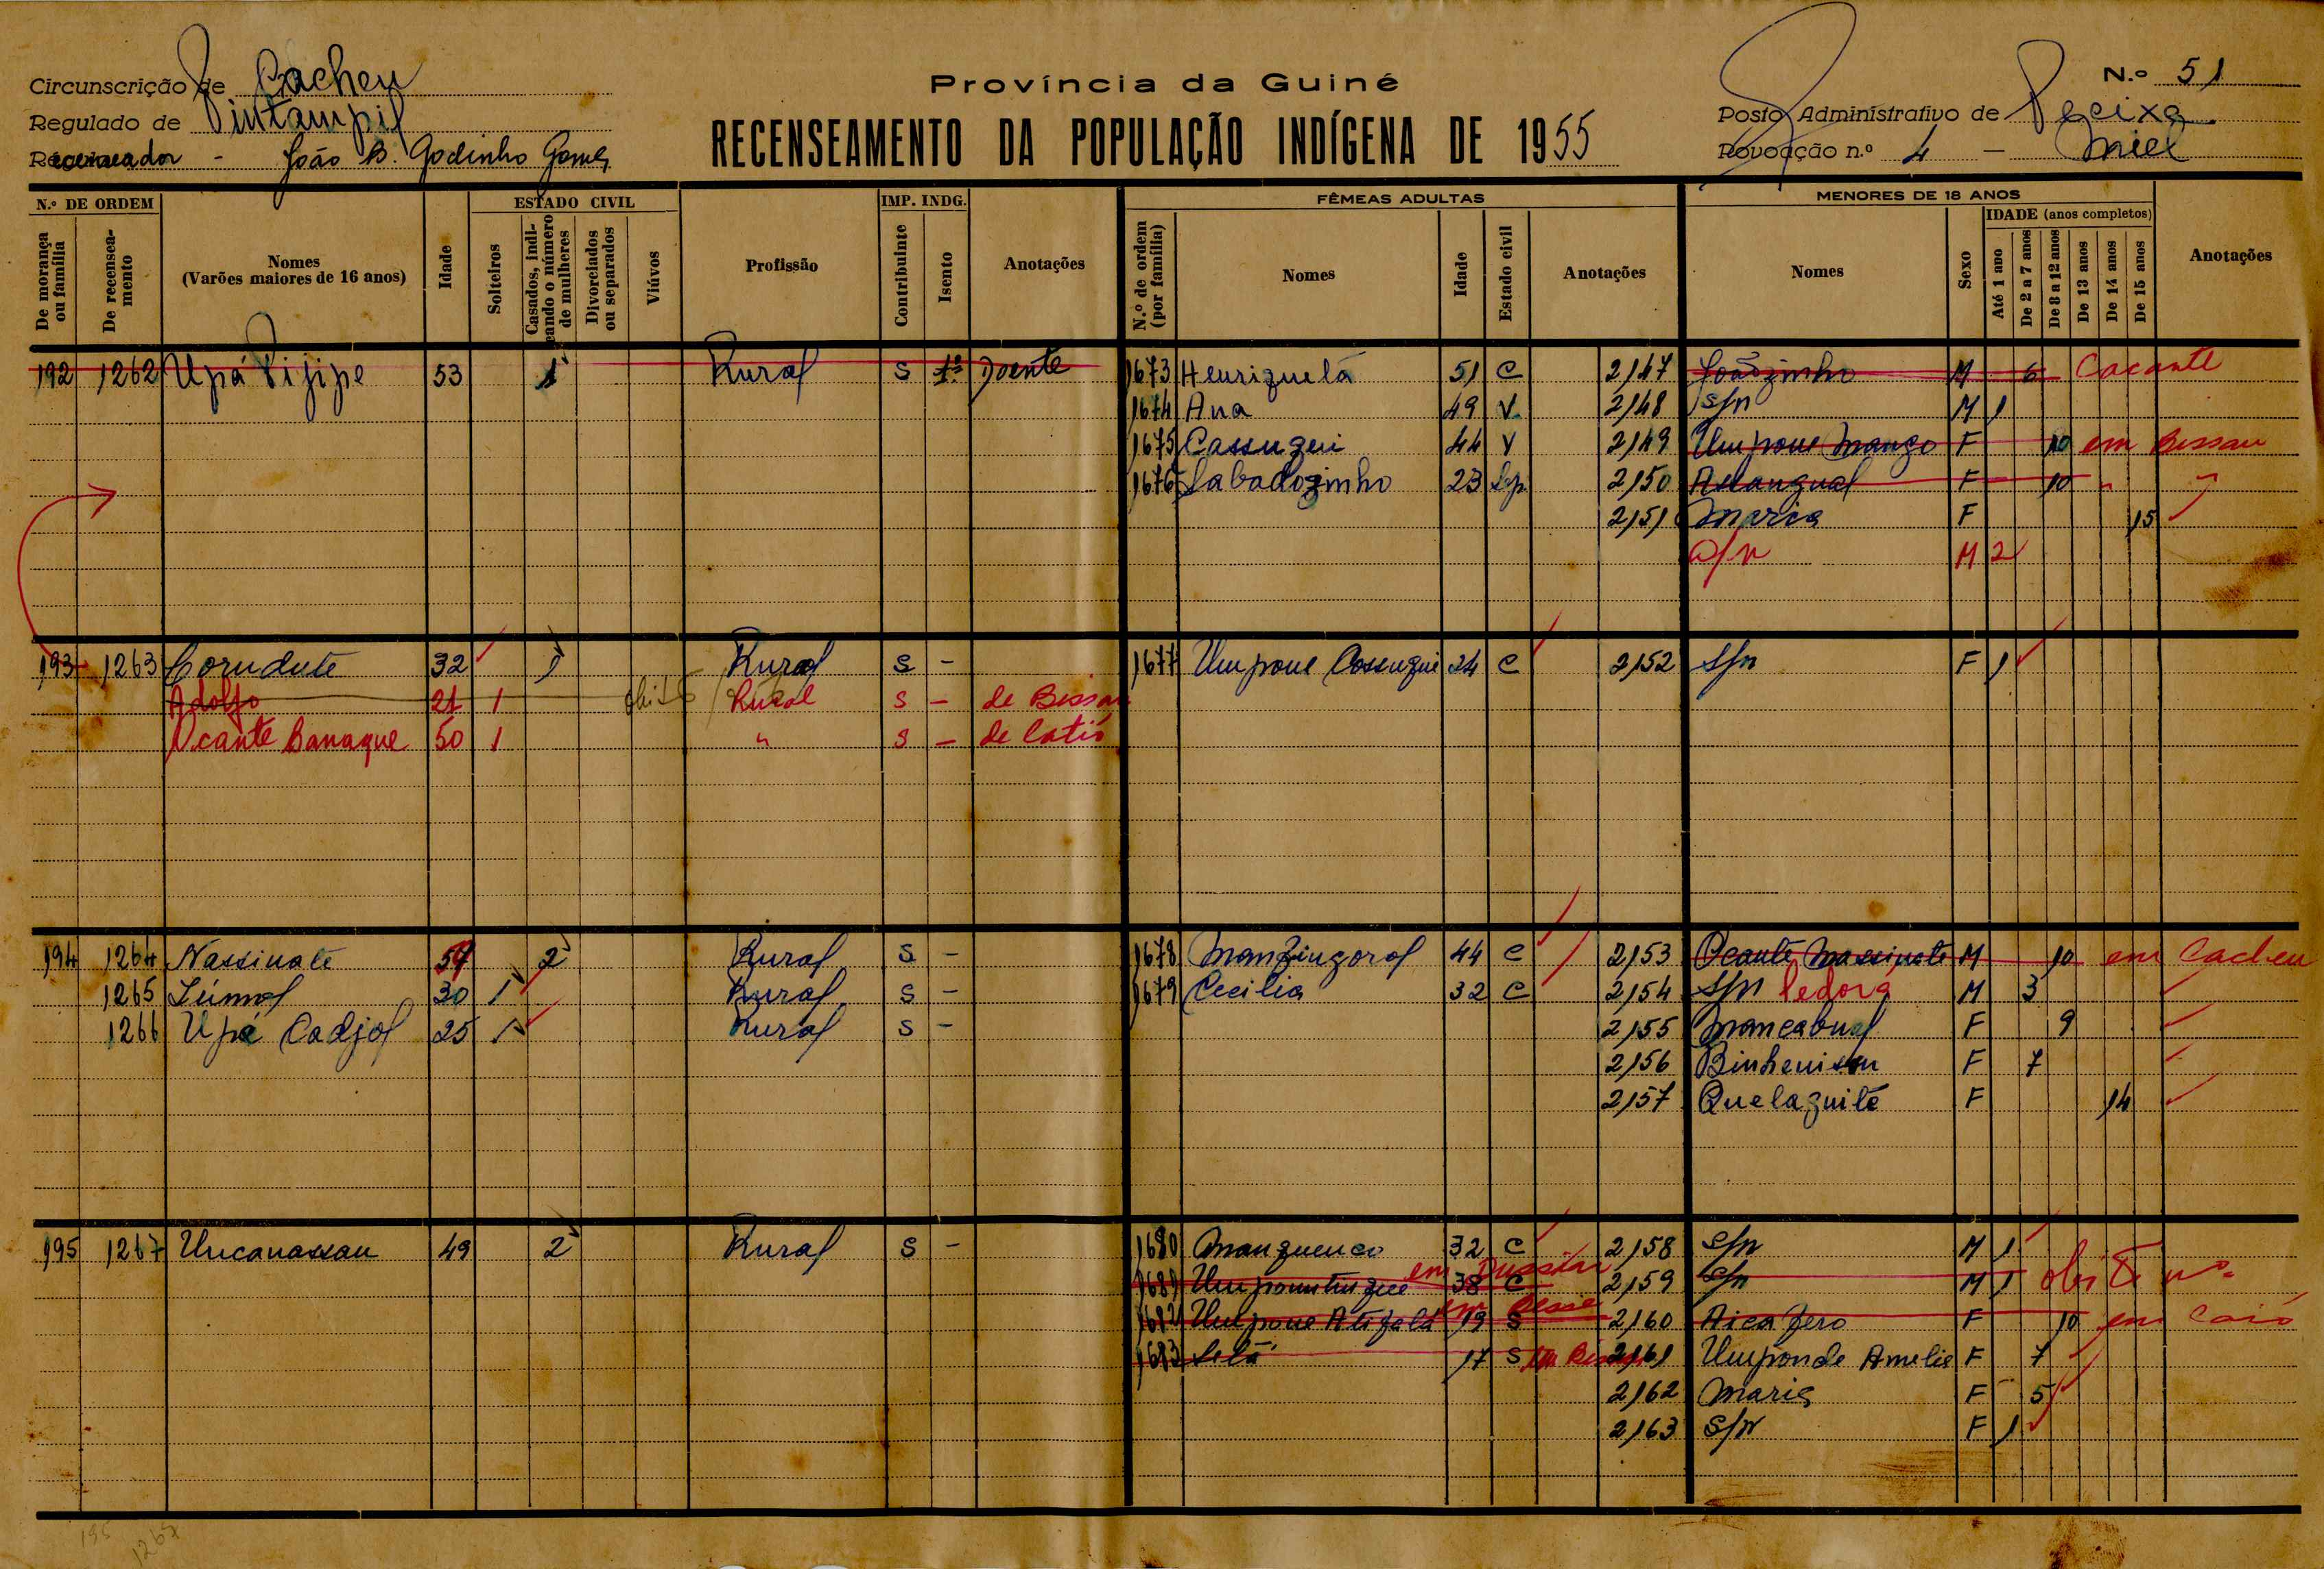 Circunscrição de Cacheu
Província da Guiné
N.º 51
Regulado de Pintampil
Posto Administrativo de Pecixe
Recenseador - João B. Godinho Gomes
RECENSEAMENTO DA POPULAÇÃO INDÍGENA DE 1955
Povoação n.º 4 - Miel
N.º DE ORDEM
De morança ou família
De recenseamento
Nomes (Varões maiores de 16 anos)
Idade
ESTADO CIVIL
Solteiros
Casados, indicando o número de mulheres
Divorciados ou separados
Viúvos
Profissão
IMP. INDG.
Contribuinte
Isento
Anotações
FÊMEAS ADULTAS
N.º de ordem (por família)
Nomes
Idade
Estado civil
Anotações
MENORES DE 18 ANOS
Nomes
Sexo
IDADE (anos completos)
Até 1 ano
De 2 a 7 anos
De 8 a 12 anos
De 13 anos
De 14 anos
De 15 anos
Anotações
192 1262 Upá Pijipe 53 1 Rural S Doente 1673 Henriquetá 51 C 2147 Joãozinho M 6 Cacante
1674 Ana 49 V 2148 S/n M 1
1675 Cassugui 44 V 2149 Umpone Mango F 10 em Bissau
1676 Sabadozinho 23 Sep. 2150 Adangual F 10 " "
2151 Maria F 15
S/n M 2
193 1263 Corudute 32 1 Rural S - 1677 Umpone Cossugui 24 C 2152 S/n F 1
Adolfo 21 1 obito Rural S - de Bissau
Ocante Banaque 50 1 " S - de Catió
194 1264 Nassinate 2 Rural S - 1678 Manzingoral 44 C 2153 Ocante Nassinate M 10 em Cacheu
1265 30 1 Rural S - 1679 Cecilia 32 C 2154 S/n Pedora M 3
1266 Upá Cadjol 25 1 Rural S - 2155 Mancabual F 9
2156 Binhenisan F 7
2157 Quelaguite F 14
195 1267 Uncanassau 49 2 Rural S - 1680 Manguenco 32 C 2158 S/n M 1
1681 38 C em 2159 S/n M 1 obito
1682 Umpone Atigala 19 S em 2160 Aica Jero F 10 em Caió
1683 Selá 17 S em Bissau 2161 Umponde Amelia F 7
2162 Maria F 5
2163 S/n F 1
195
1267